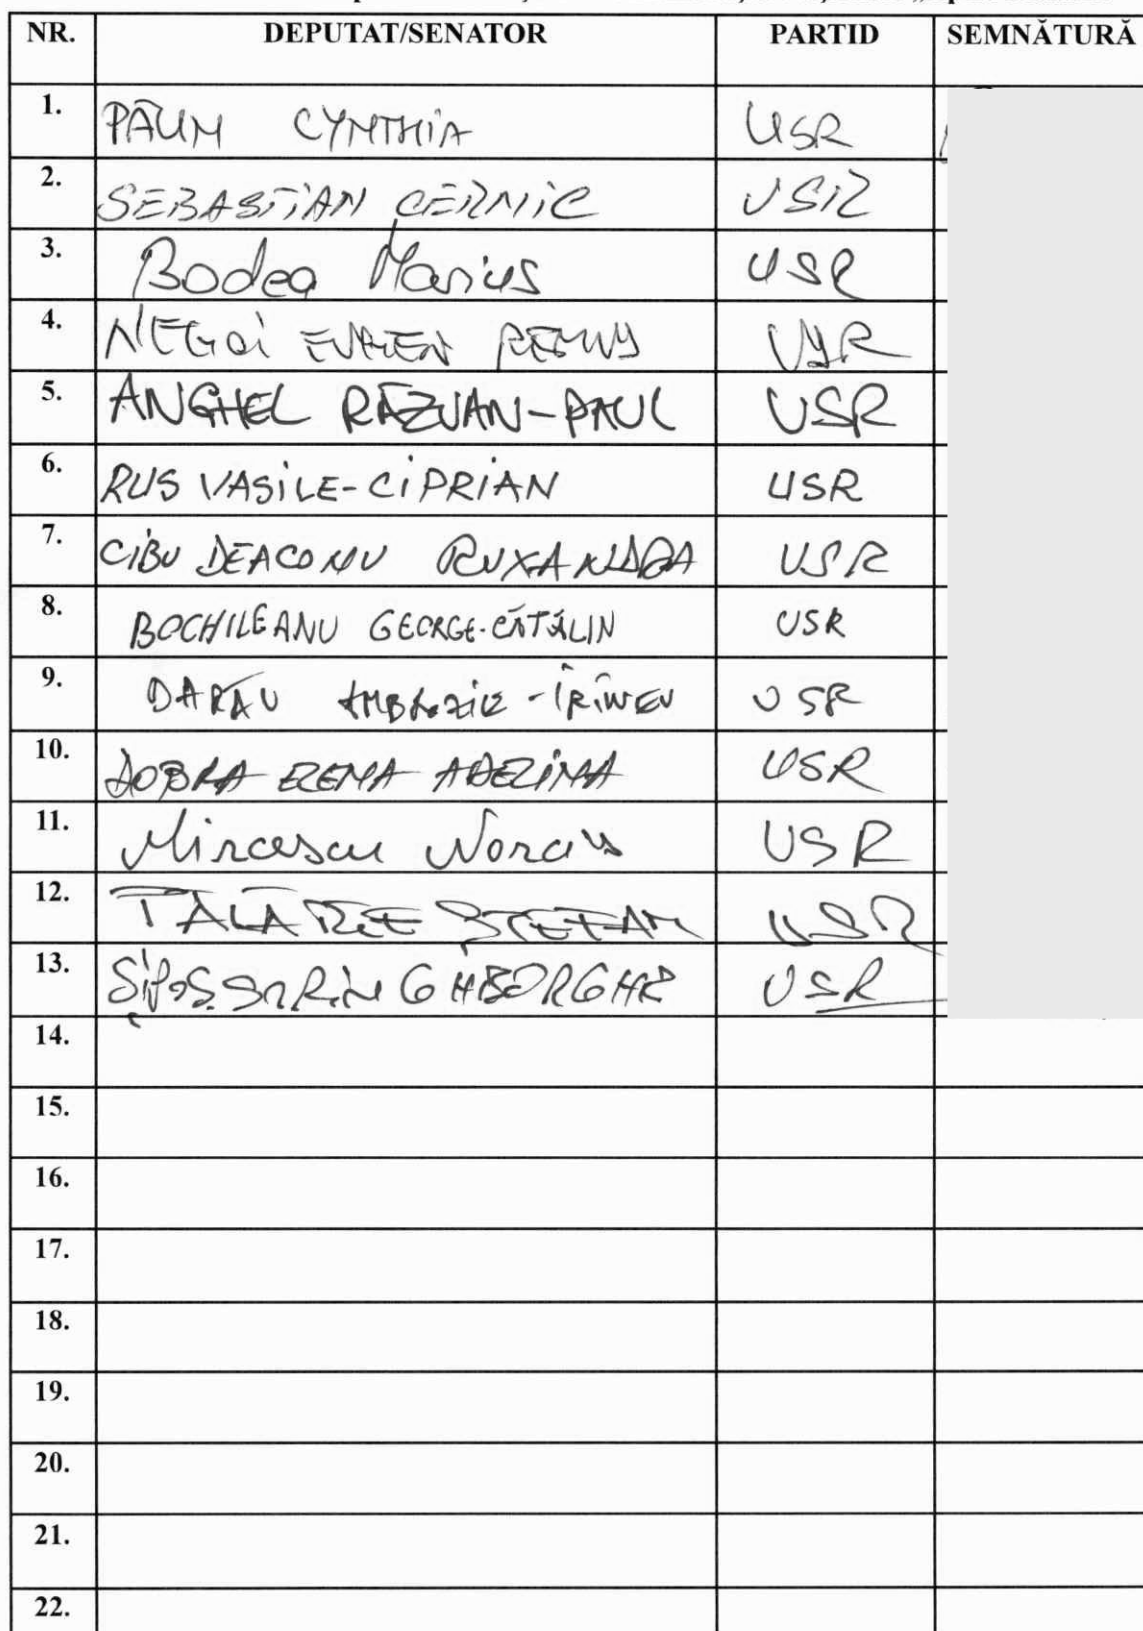 NR. DEPUTAT/SENATOR PARTID SEMNĂTURĂ
1. PĂUN CYNTHIA USR
2. SEBASTIAN CERNIC USR
3. Bodea Marius USR
4. NEGOI EUGEN REMUS USR
5. ANGHEL RĂZVAN-PAUL USR
6. RUS VASILE-CIPRIAN USR
7. CIBU DEACONU RUXANDRA USR
8. BOCHILEANU GEORGE-CĂTĂLIN USR
9. DARĂU AMBROZIE-IRINEU USR
10. DOBRA ELENA ADELINA USR
11. Mircescu Narcis USR
12. PĂLĂRIE ȘTEFAN USR
13. ȘIPOȘ SORIN GHEORGHE USR
14.
15.
16.
17.
18.
19.
20.
21.
22.